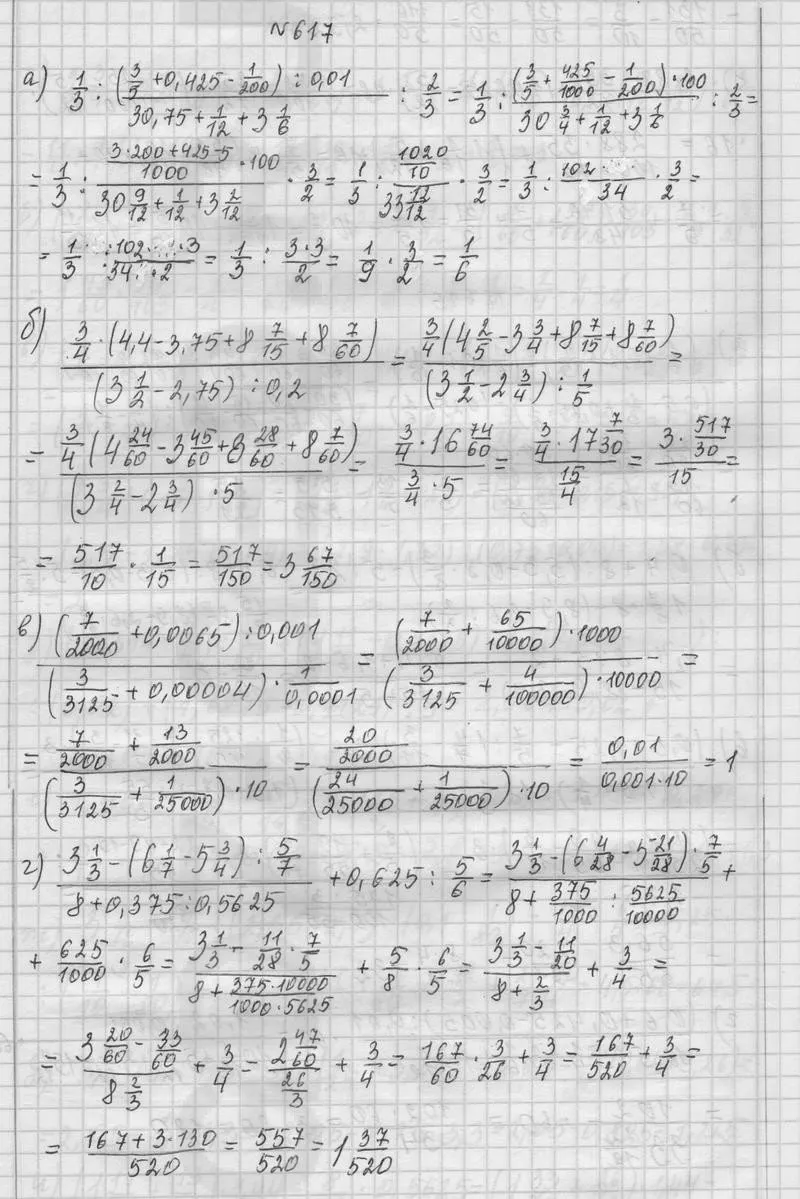 №617
а) 1/3 : ((3/5 + 0,425 - 1/200) : 0,01)/(30,75 + 1/12 + 3 1/6) : 2/3 = 1/3 : ((3/5 + 425/1000 - 1/200) · 100)/(30 3/4 + 1/12 + 3 1/6) : 2/3 =
= 1/3 : ((3·200+425-5)/1000 · 100)/(30 9/12 + 1/12 + 3 2/12) · 3/2 = 1/3 : (1020/10)/(33 12/12) · 3/2 = 1/3 : 102/34 · 3/2 =
= 1/3 : (102 · 3)/(34 · 2) = 1/3 : (3·3)/2 = 1/9 · 3/2 = 1/6
б) (3/4 · (4,4 - 3,75 + 8 7/15 + 8 7/60))/((3 1/2 - 2,75) : 0,2) = (3/4 (4 2/5 - 3 3/4 + 8 7/15 + 8 7/60))/((3 1/2 - 2 3/4) : 1/5) =
= (3/4 (4 24/60 - 3 45/60 + 8 28/60 + 8 7/60))/((3 2/4 - 2 3/4) · 5) = (3/4 · 16 74/60)/(3/4 · 5) = (3/4 · 17 7/30)/(15/4) = (3 · 517/30)/15 =
= 517/10 · 1/15 = 517/150 = 3 67/150
в) ((7/2000 + 0,0065) : 0,001)/((3/3125 + 0,00004) · 1/0,0001) = ((7/2000 + 65/10000) · 1000)/((3/3125 + 4/100000) · 10000) =
= (7/2000 + 13/2000)/((3/3125 + 1/25000) · 10) = (20/2000)/((24/25000 + 1/25000) · 10) = 0,01/(0,001·10) = 1
г) (3 1/3 - (6 1/7 - 5 3/4) : 5/7)/(8 + 0,375 : 0,5625) + 0,625 : 5/6 = (3 1/3 - (6 4/28 - 5 21/28) · 7/5)/(8 + 375/1000 : 5625/10000) +
+ 625/1000 · 6/5 = (3 1/3 - 11/28 · 7/5)/(8 + (375·10000)/(1000·5625)) + 5/8 · 6/5 = (3 1/3 - 11/20)/(8 + 2/3) + 3/4 =
= (3 20/60 - 33/60)/(8 2/3) + 3/4 = (2 47/60)/(26/3) + 3/4 = 167/60 · 3/26 + 3/4 = 167/520 + 3/4 =
= (167 + 3·130)/520 = 557/520 = 1 37/520